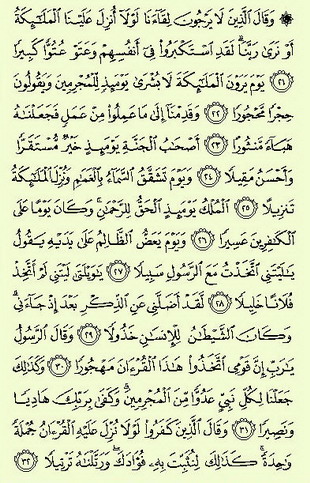 ۞ وَقَالَ ٱلَّذِينَ لَا يَرْجُونَ لِقَآءَنَا لَوْلَآ أُنزِلَ عَلَيْنَا ٱلْمَلَٰٓئِكَةُ
أَوْ نَرَىٰ رَبَّنَا ۗ لَقَدِ ٱسْتَكْبَرُوا۟ فِىٓ أَنفُسِهِمْ وَعَتَوْ عُتُوًّا كَبِيرًا
٢١ يَوْمَ يَرَوْنَ ٱلْمَلَٰٓئِكَةَ لَا بُشْرَىٰ يَوْمَئِذٍ لِّلْمُجْرِمِينَ وَيَقُولُونَ
حِجْرًا مَّحْجُورًا ٢٢ وَقَدِمْنَآ إِلَىٰ مَا عَمِلُوا۟ مِنْ عَمَلٍ فَجَعَلْنَٰهُ
هَبَآءً مَّنثُورًا ٢٣ أَصْحَٰبُ ٱلْجَنَّةِ يَوْمَئِذٍ خَيْرٌ مُّسْتَقَرًّا
وَأَحْسَنُ مَقِيلًا ٢٤ وَيَوْمَ تَشَقَّقُ ٱلسَّمَآءُ بِٱلْغَمَٰمِ وَنُزِّلَ ٱلْمَلَٰٓئِكَةُ
تَنزِيلًا ٢٥ ٱلْمُلْكُ يَوْمَئِذٍ ٱلْحَقُّ لِلرَّحْمَٰنِ ۚ وَكَانَ يَوْمًا عَلَى
ٱلْكَٰفِرِينَ عَسِيرًا ٢٦ وَيَوْمَ يَعَضُّ ٱلظَّالِمُ عَلَىٰ يَدَيْهِ يَقُولُ
يَٰلَيْتَنِى ٱتَّخَذْتُ مَعَ ٱلرَّسُولِ سَبِيلًا ٢٧ يَٰوَيْلَتَىٰ لَيْتَنِى لَمْ أَتَّخِذْ
فُلَانًا خَلِيلًا ٢٨ لَّقَدْ أَضَلَّنِى عَنِ ٱلذِّكْرِ بَعْدَ إِذْ جَآءَنِى ۗ
وَكَانَ ٱلشَّيْطَٰنُ لِلْإِنسَٰنِ خَذُولًا ٢٩ وَقَالَ ٱلرَّسُولُ
يَٰرَبِّ إِنَّ قَوْمِى ٱتَّخَذُوا۟ هَٰذَا ٱلْقُرْءَانَ مَهْجُورًا ٣٠ وَكَذَٰلِكَ
جَعَلْنَا لِكُلِّ نَبِىٍّ عَدُوًّا مِّنَ ٱلْمُجْرِمِينَ ۗ وَكَفَىٰ بِرَبِّكَ هَادِيًا
وَنَصِيرًا ٣١ وَقَالَ ٱلَّذِينَ كَفَرُوا۟ لَوْلَا نُزِّلَ عَلَيْهِ ٱلْقُرْءَانُ جُمْلَةً
وَٰحِدَةً ۚ كَذَٰلِكَ لِنُثَبِّتَ بِهِۦ فُؤَادَكَ ۖ وَرَتَّلْنَٰهُ تَرْتِيلًا ٣٢